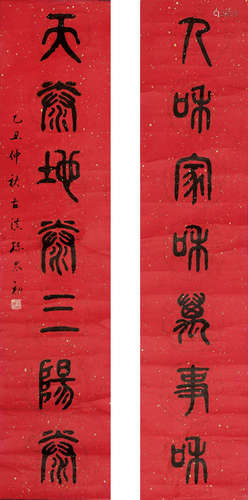 人和家和萬事和
天泰地泰三陽泰
乙丑仲秋古滇孫太初